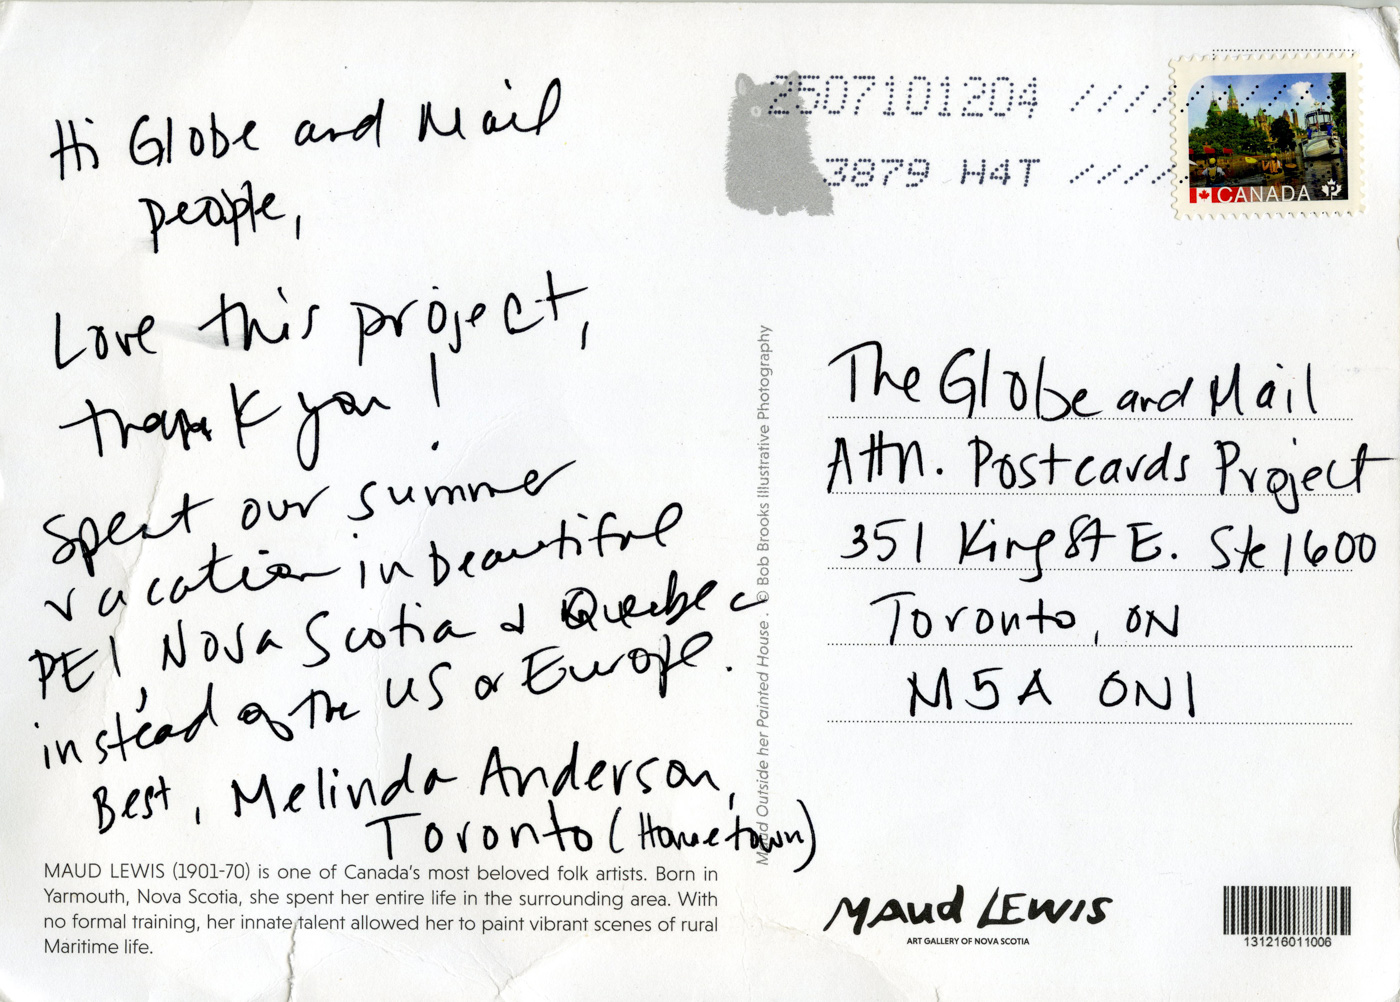 Hi Globe and Mail
people,
Love this project,
thank you!
Spent our summer
vacation in beautiful
PEI, Nova Scotia & Quebec
instead of the US or Europe.
Best, Melinda Anderson,
Toronto (Hometown)
MAUD LEWIS (1901-70) is one of Canada's most beloved folk artists. Born in
Yarmouth, Nova Scotia, she spent her entire life in the surrounding area. With
no formal training, her innate talent allowed her to paint vibrant scenes of rural
Maritime life.
Maud Outside her Painted House . © Bob Brooks Illustrative Photography
2507101204 /////
3879 H4T /////
CANADA P
The Globe and Mail
Attn. Postcards Project
351 King St E. Ste 1600
Toronto, ON
M5A 0N1
MAUD LEWIS
ART GALLERY OF NOVA SCOTIA
131216011006